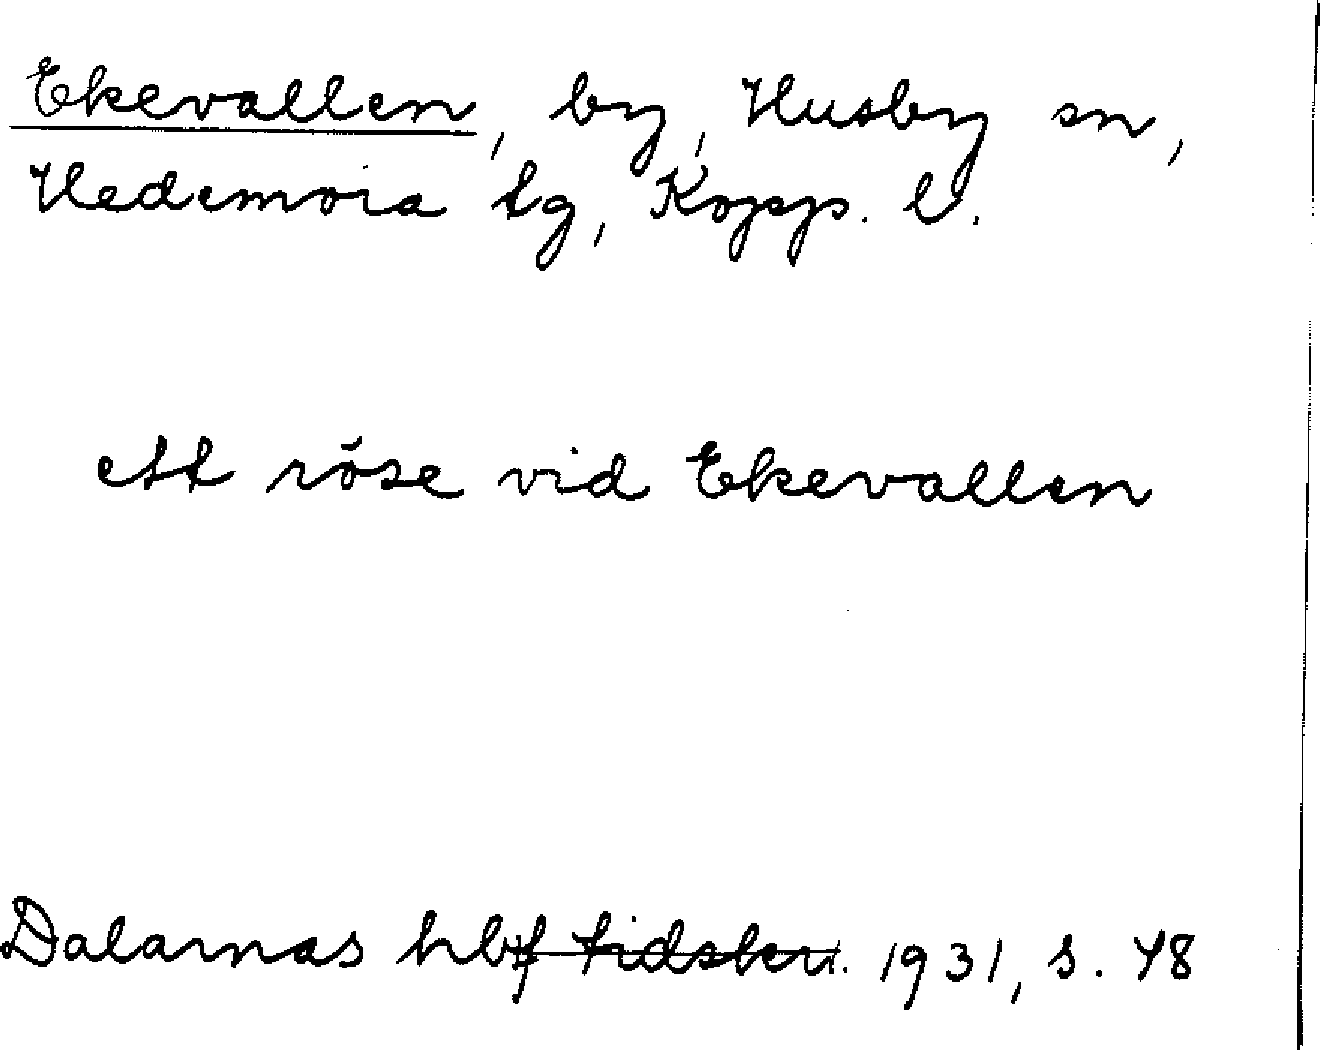 Ekevallen, by, Husby sn,
Hedemora tg, Kopp. l.
ett röse vid Ekevallen
Dalarnas hbf tidskr. 1931, s. 48